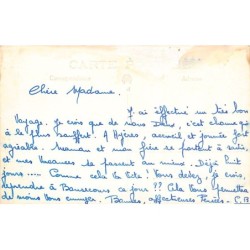 Chère Madame.
J'ai effectué un très bon
voyage. Je crois que de nous deux, c'est
a le plus souffert. A Hyères, accueil et journée fort
agréable. Maman et mon frère se portent à ravir,
et mes vacances se passent au mieux. Déjà huit
jours..... Comme cela va vite! Vous devez, je crois,
reprendre à ce jour ?? Cela vous
de moins vous ennuyer. affectueuses